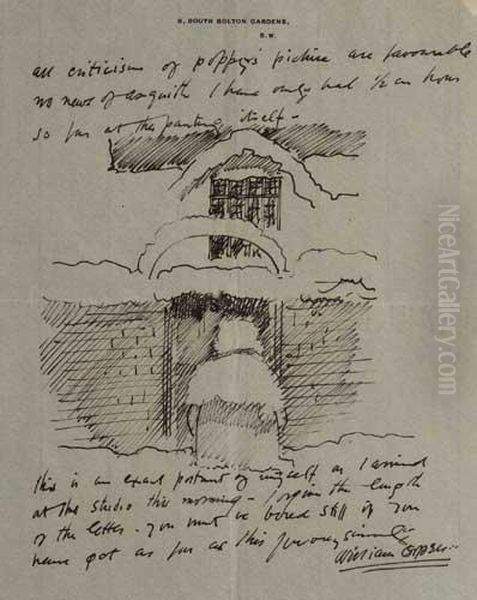 8, SOUTH BOLTON GARDENS,
S.W.
all criticism of poppy's picture are favourable
no news of Asquith I have only had ½ an hour
so far at the painting itself –
This is an exact portrait of myself as I arrived
at the studio this morning – Forgive the length
of the letter – You must be bored stiff if you
have got as far as this
William Orpen
NiceArtGallery.com